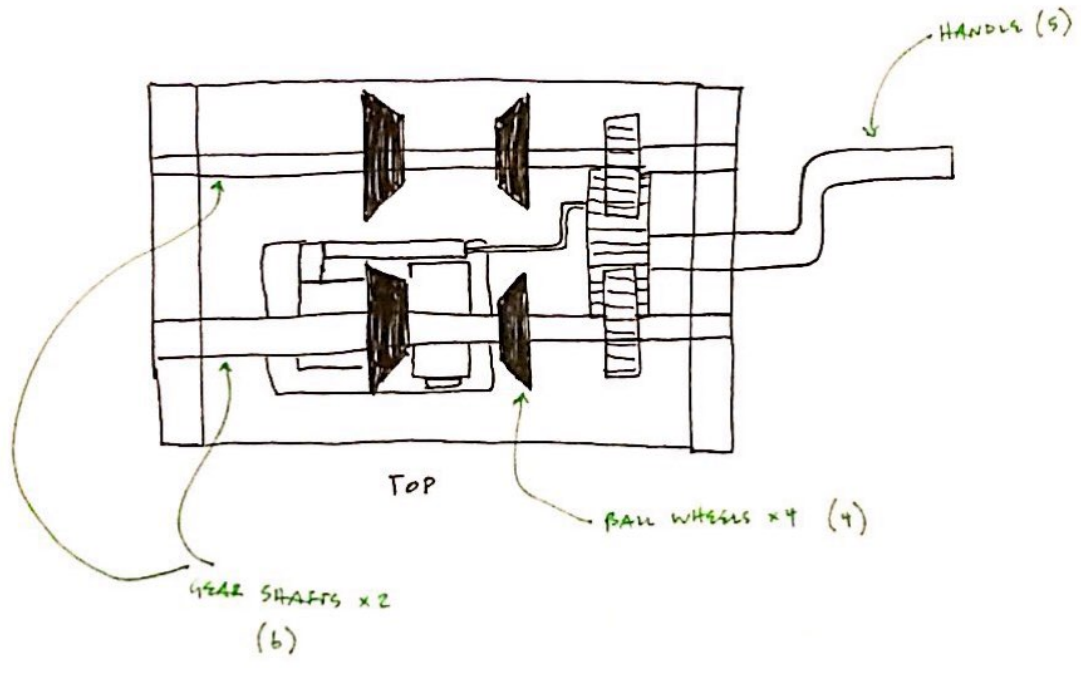 HANDLE (5)
TOP
BALL WHEELS x4 (4)
GEAR SHAFTS x2
(6)